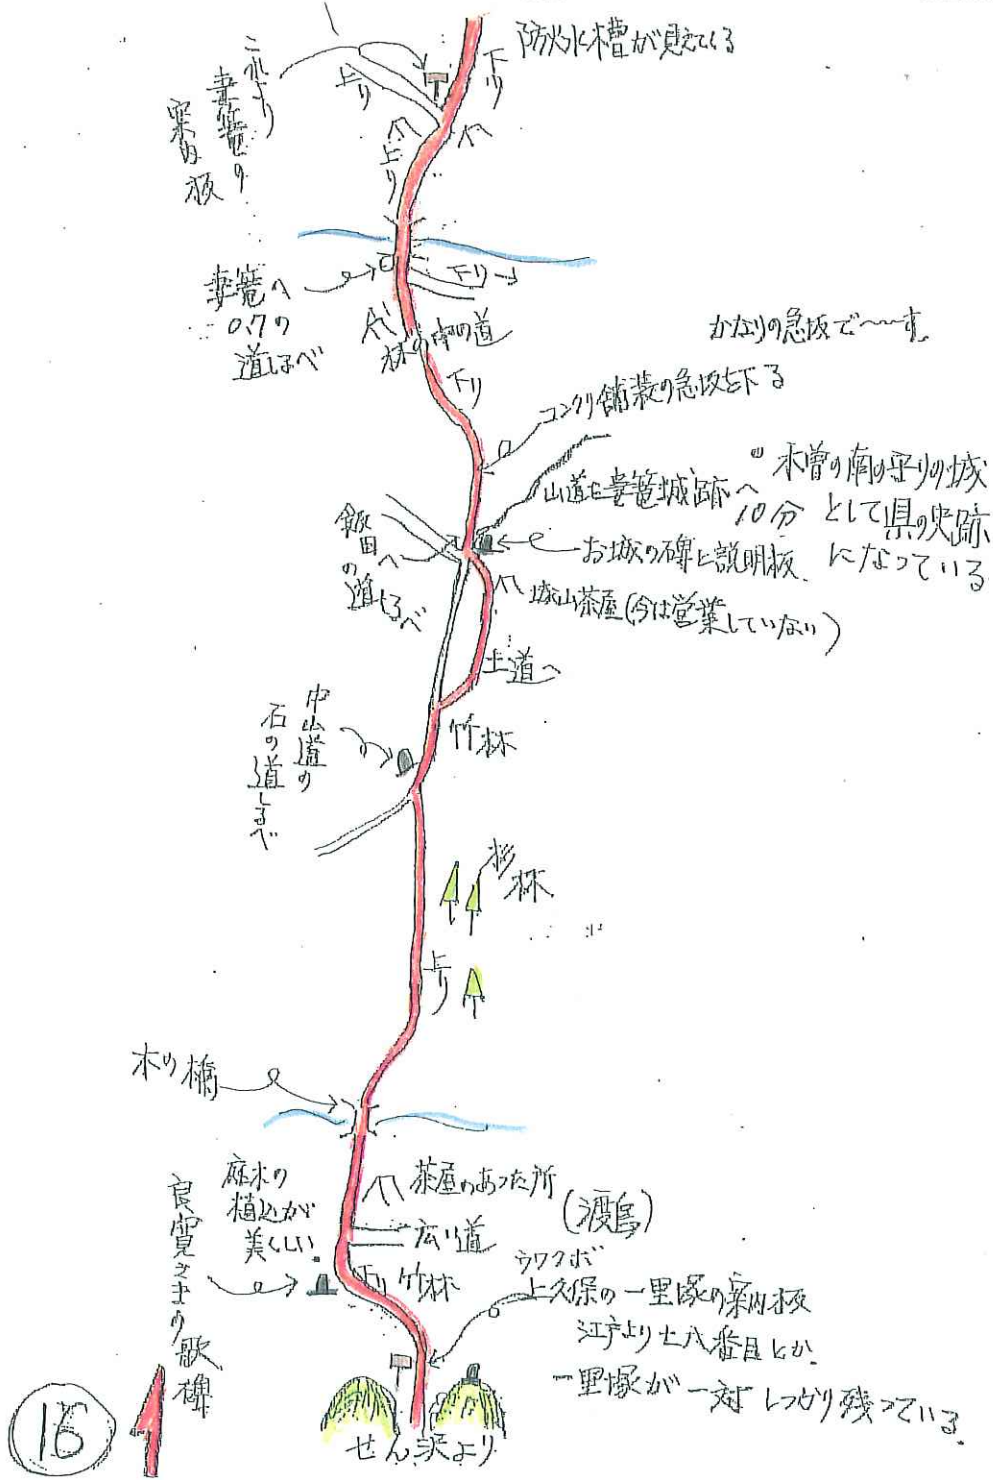 防火水槽が見えてくる
下り
上り
これより
妻籠の
案内板
上り
下り→
妻籠へ
0.7の
道しるべ
林の中の道
かなりの急坂で〜〜す。
下り
コンクリ舗装の急坂を下る
山道を妻籠城跡へ
10分
木曽の南の守りの城
として県の史跡
になっている
お城の碑と説明板
飯田へ
の道しるべ
城山茶屋(今は営業していない)
土道へ
竹林
中山道の
石の道しるべ
杉林
上り
木の橋
庭木の
植込が
美くしい
茶屋のあった所
(渡島)
広い道
良寛さまの歌碑
下り
竹林
ウワクボ
上久保の一里塚の案内板
江戸より七八番目とか
一里塚が一対しっかり残っている。
せん沢より